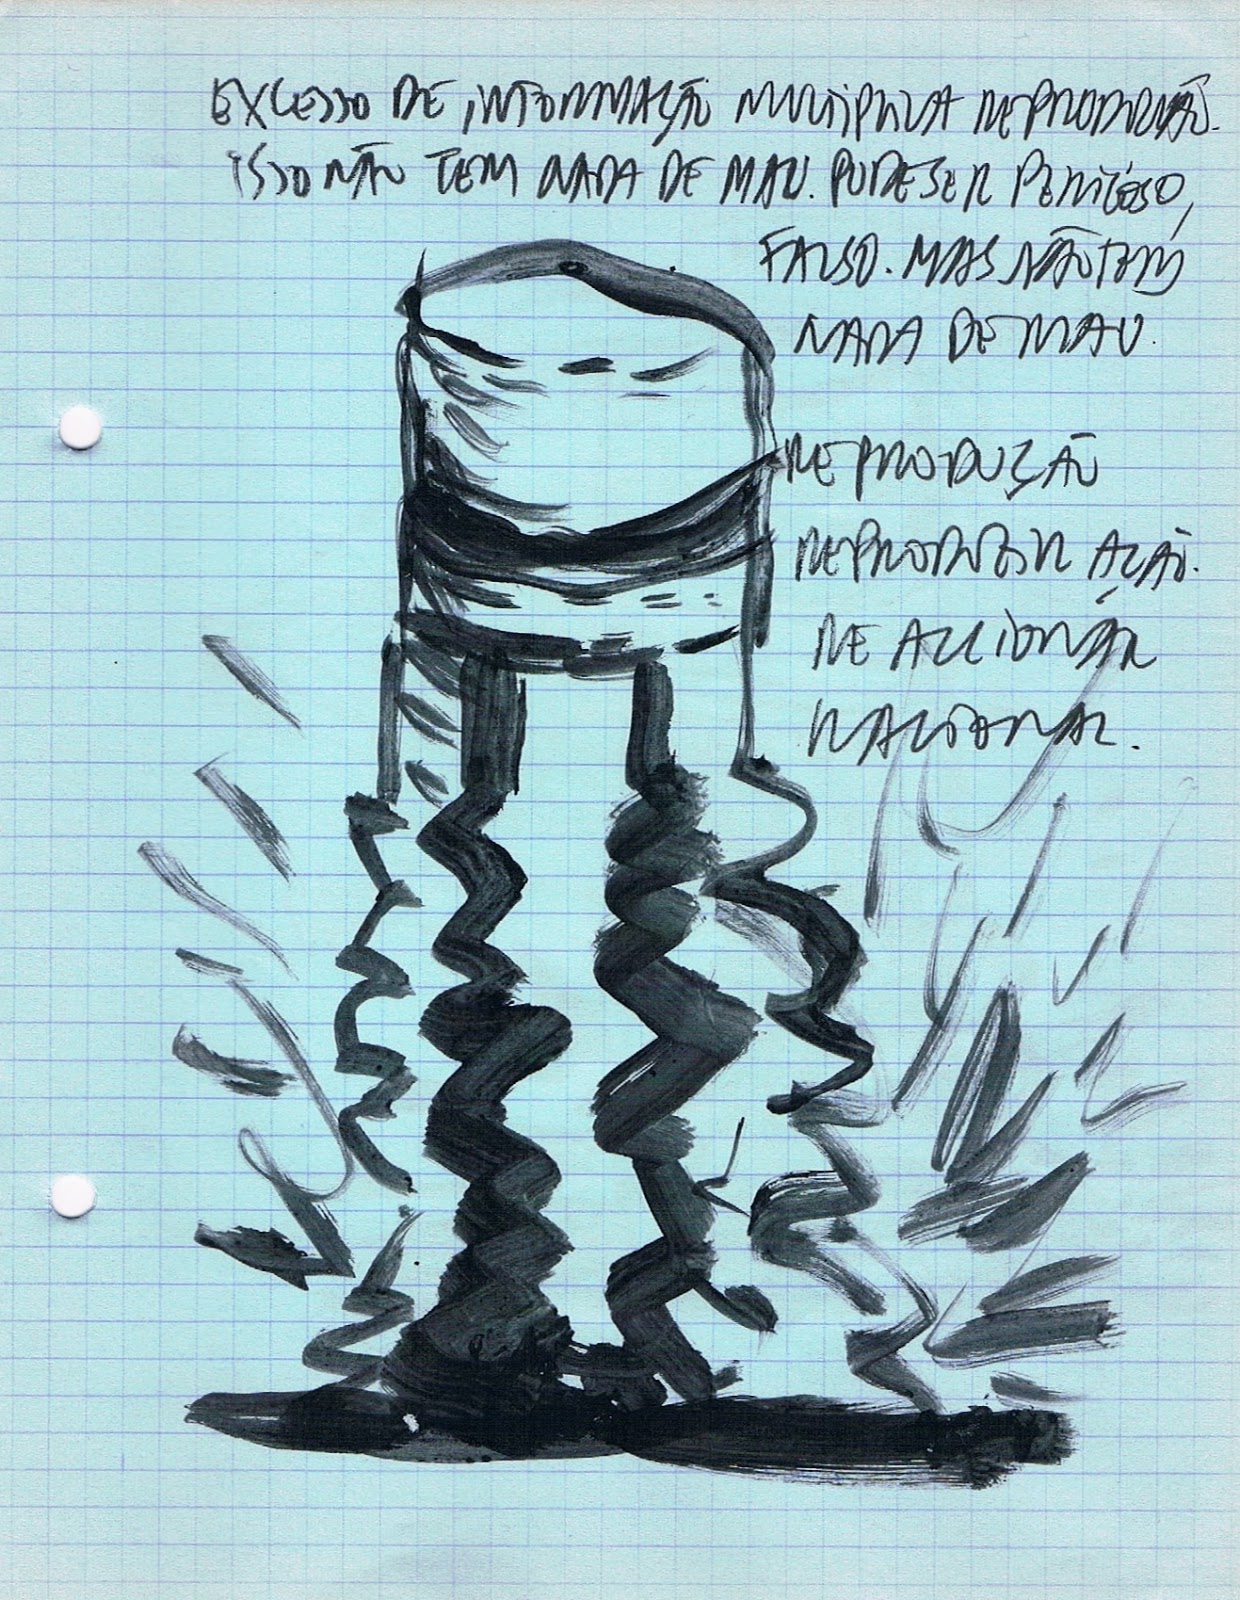 EXCESSO DE INFORMAÇÃO MULTIPLICA REPRODUÇÃO.
ISSO NÃO TEM NADA DE MAU. PODE SER PERIGOSO,
FALSO. MAS NÃO TEM
NADA DE MAU.
REPRODUÇÃO
REPRODUZIR AÇÃO.
RE ACCIONAR
NACIONAL.